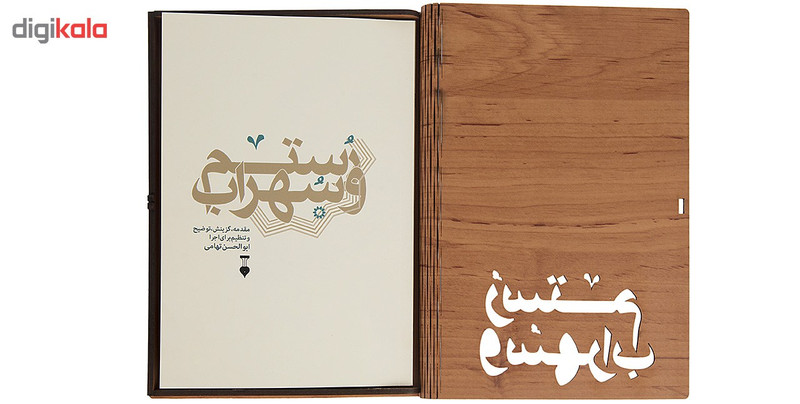 digikala
رُستم
و سُهراب
مقدمه، گزینش، توضیح
و تنظیم برای اجرا
ابوالحسن تهامی
رُستم
و سُهراب